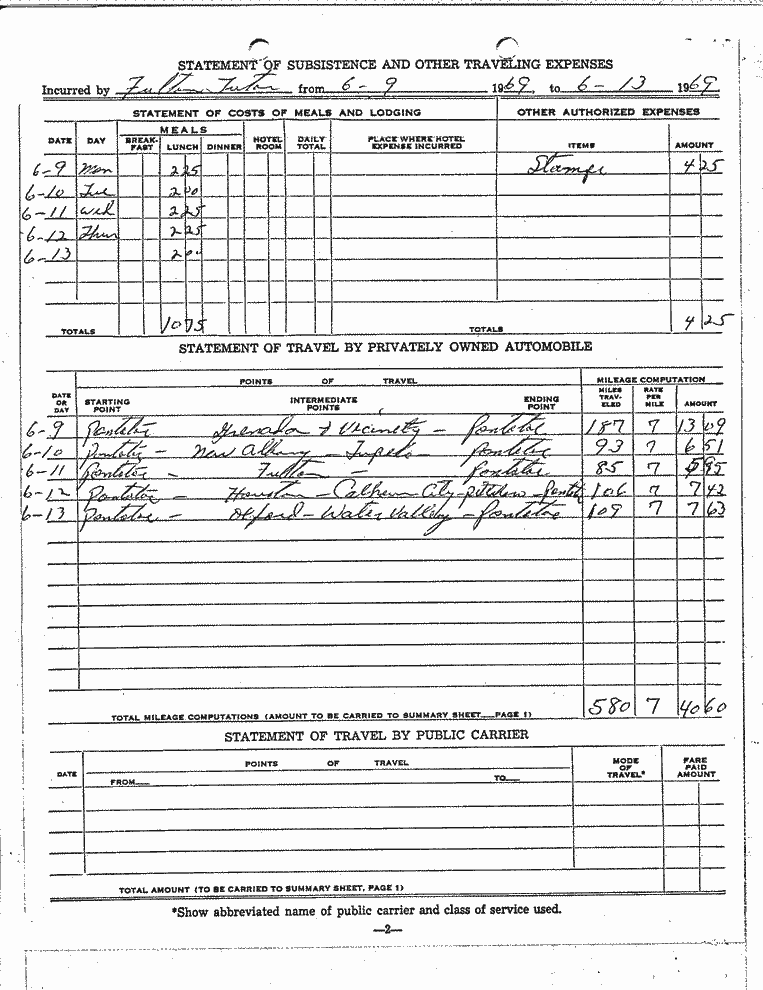 STATEMENT OF SUBSISTENCE AND OTHER TRAVELING EXPENSES
Incurred by Fulton Tutor from 6-9 1969, to 6-13 1969
STATEMENT OF COSTS OF MEALS AND LODGING OTHER AUTHORIZED EXPENSES
DATE DAY MEALS BREAK-FAST LUNCH DINNER HOTEL ROOM DAILY TOTAL PLACE WHERE HOTEL EXPENSE INCURRED ITEMS AMOUNT
6-9 Mon 2 25 Stamps 4 25
6-10 Tue 2 00
6-11 Wed 2 25
6-12 Thur 2 25
6-13 2 00
TOTALS 10 75 TOTALS 4 25
STATEMENT OF TRAVEL BY PRIVATELY OWNED AUTOMOBILE
POINTS OF TRAVEL MILEAGE COMPUTATION
DATE OR DAY STARTING POINT INTERMEDIATE POINTS ENDING POINT MILES TRAV-ELED RATE PER MILE AMOUNT
6-9 Pontotoc Grenada & Vicinity - Pontotoc 187 7 13 09
6-10 Pontotoc - New Albany - Tupelo - Pontotoc 93 7 6 51
6-11 Pontotoc - Fulton - Pontotoc 85 7 5 95
6-12 Pontotoc - Houston - Calhoun City - Pittsboro - Pontotoc 106 7 7 42
6-13 Pontotoc - Oxford - Water Valley - Pontotoc 109 7 7 63
TOTAL MILEAGE COMPUTATIONS (AMOUNT TO BE CARRIED TO SUMMARY SHEET PAGE 1) 580 7 40 60
STATEMENT OF TRAVEL BY PUBLIC CARRIER
DATE POINTS OF TRAVEL MODE OF TRAVEL* FARE PAID AMOUNT
FROM TO
TOTAL AMOUNT (TO BE CARRIED TO SUMMARY SHEET, PAGE 1)
*Show abbreviated name of public carrier and class of service used.
—2—